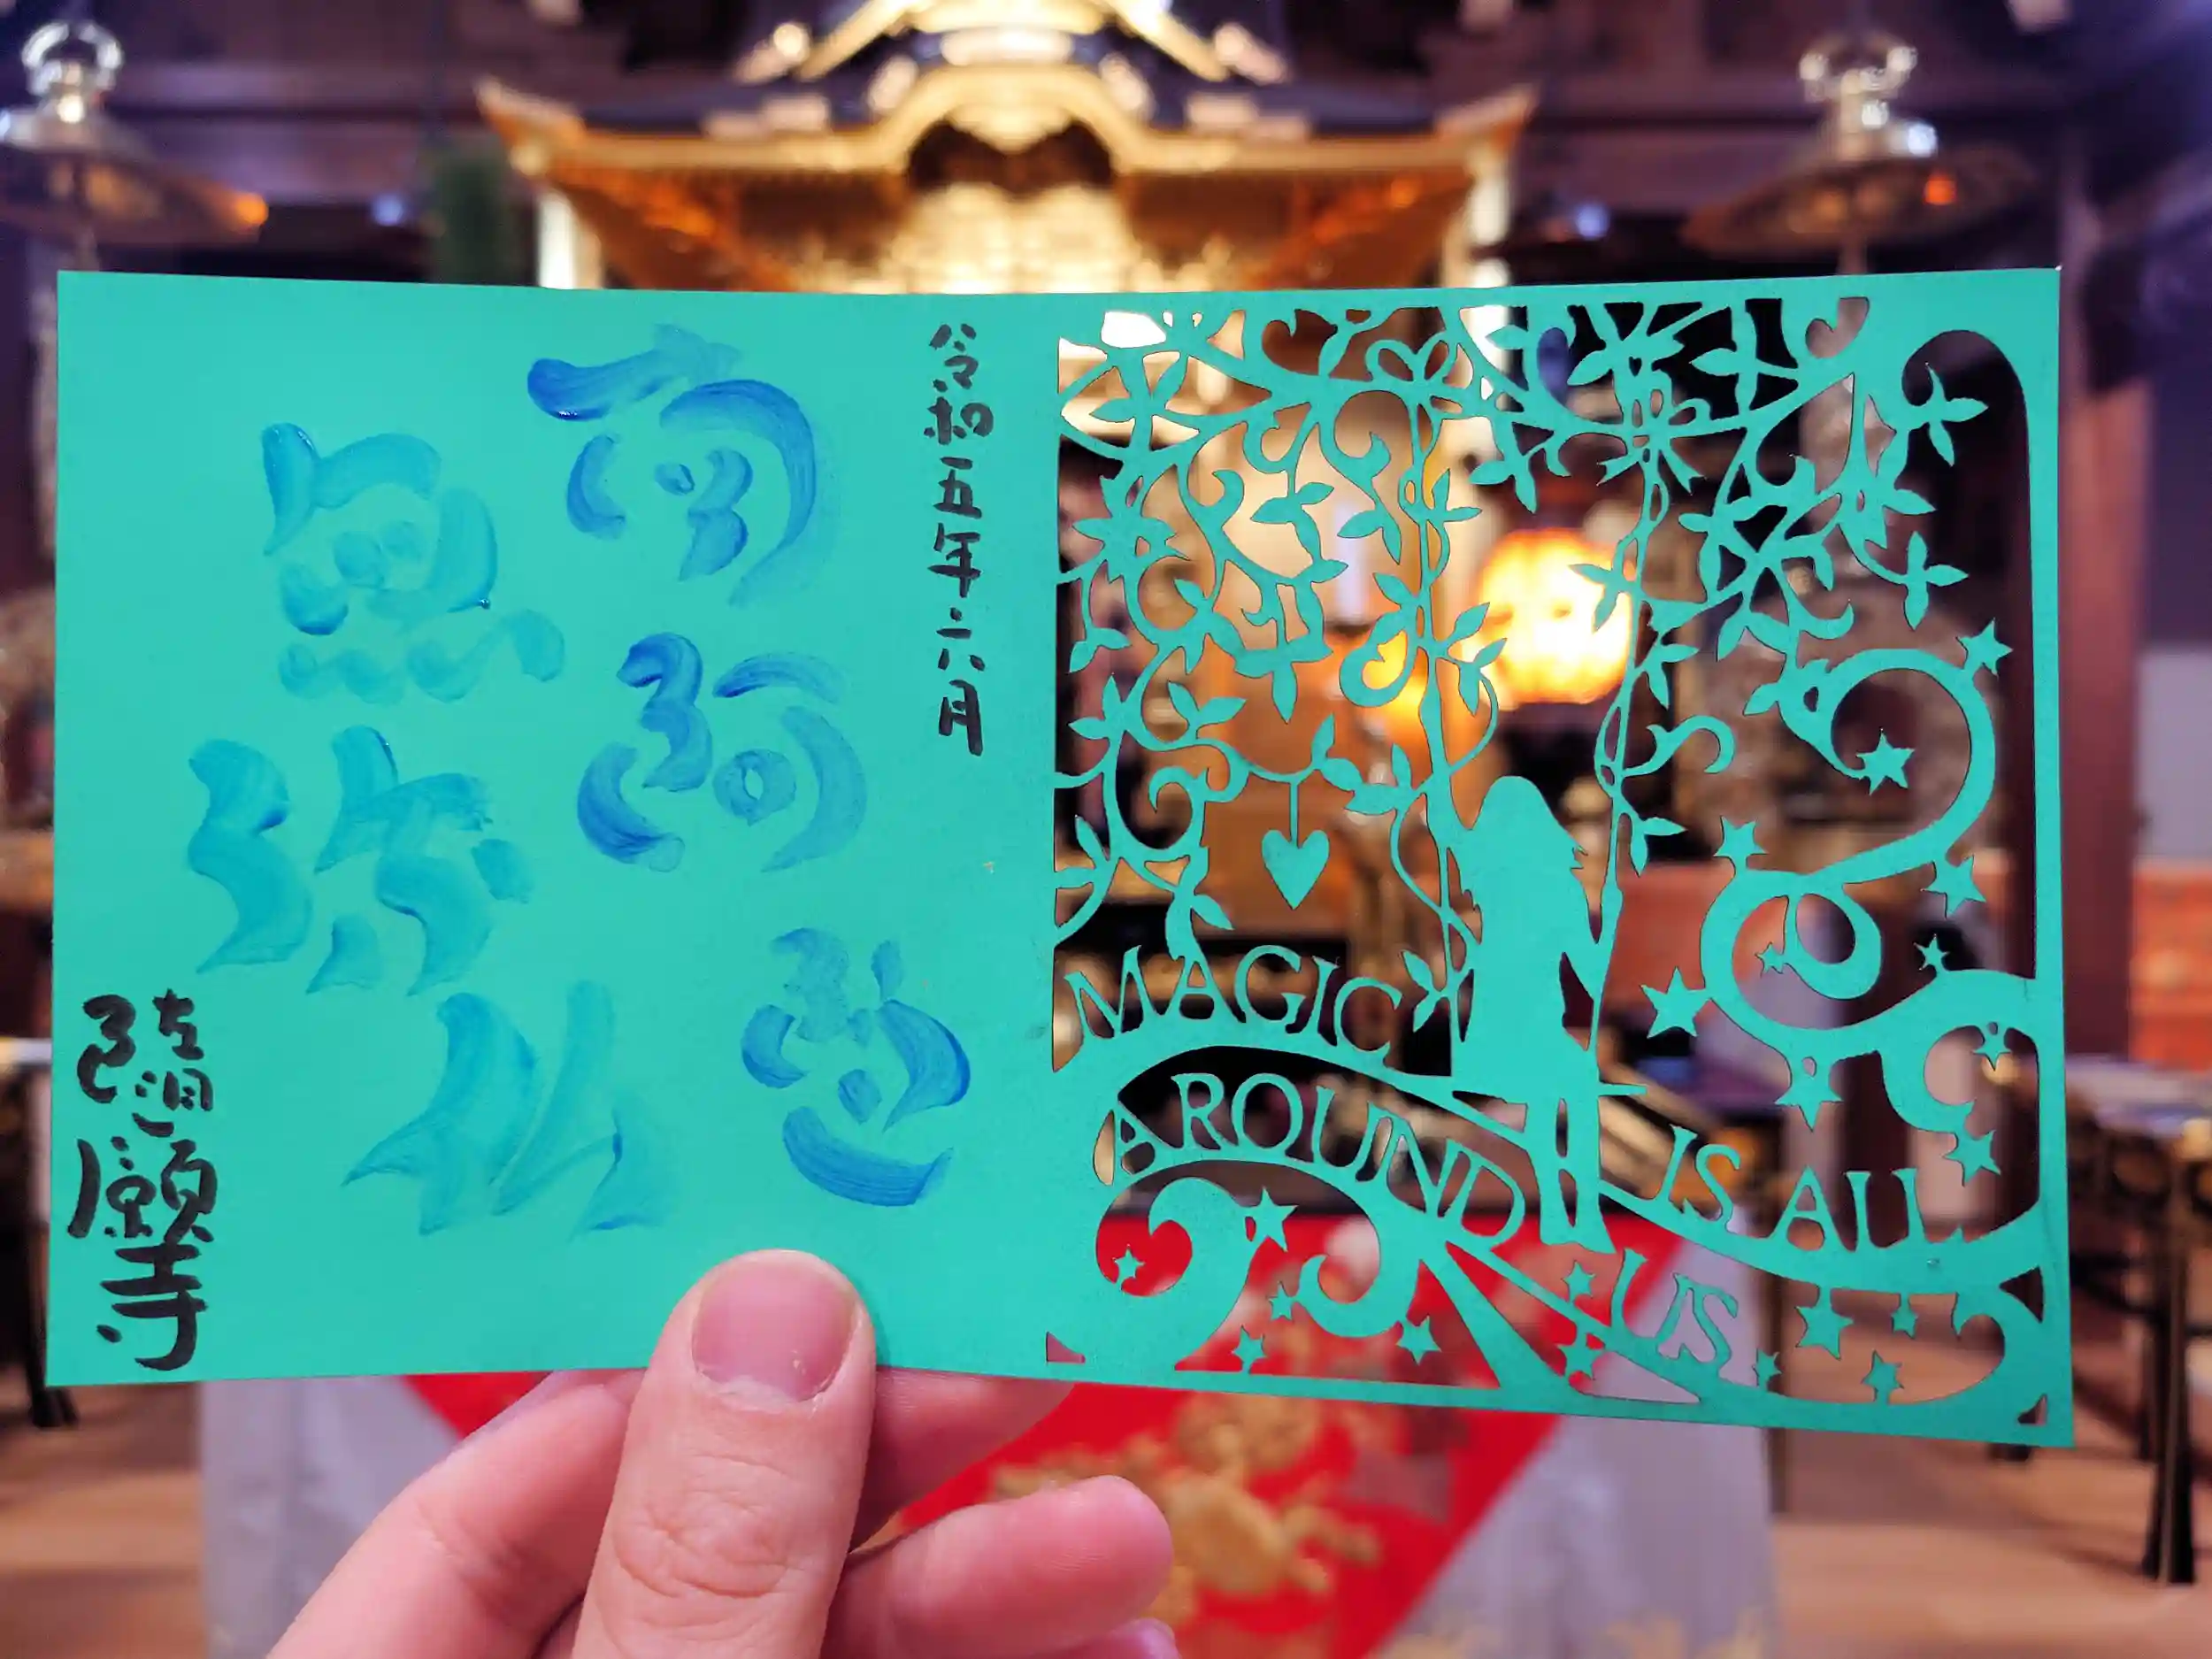 令和五年六月
南無
阿弥
陀仏
隨願寺
MAGIC
IS ALL
AROUND
US